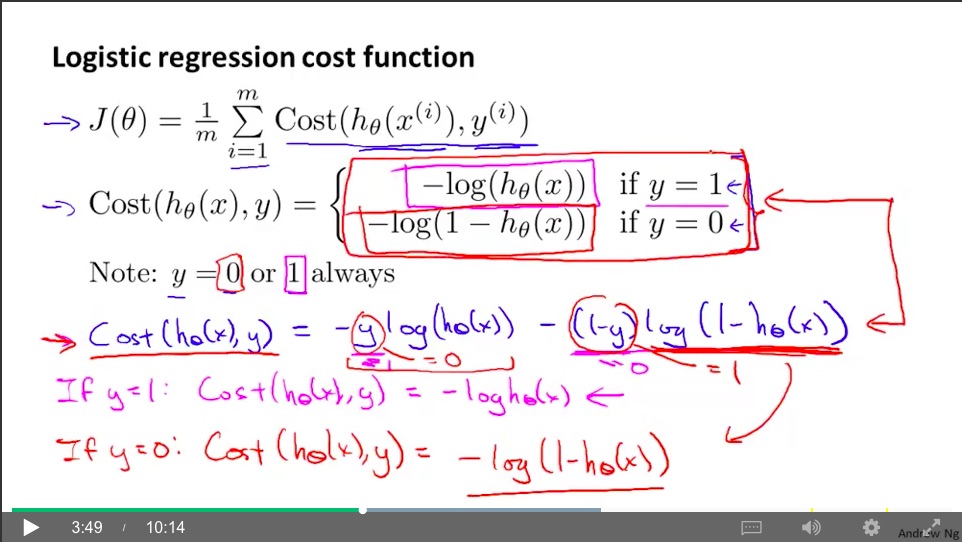 Logistic regression cost function
→ J(θ) = 1/m ∑_{i=1}^{m} Cost(h_θ(x^{(i)}), y^{(i)})
→ Cost(h_θ(x), y) = { −log(h_θ(x)) if y = 1 ←
−log(1 − h_θ(x)) if y = 0 ←
Note: y = 0 or 1 always
→ Cost(h_θ(x), y) = −y log(h_θ(x)) − (1−y) log(1−h_θ(x)) ←
=1 =0 =0 =1
If y=1: Cost(h_θ(x), y) = −log h_θ(x) ←
If y=0: Cost(h_θ(x), y) = −log(1−h_θ(x))
3:49 / 10:14
Andrew Ng